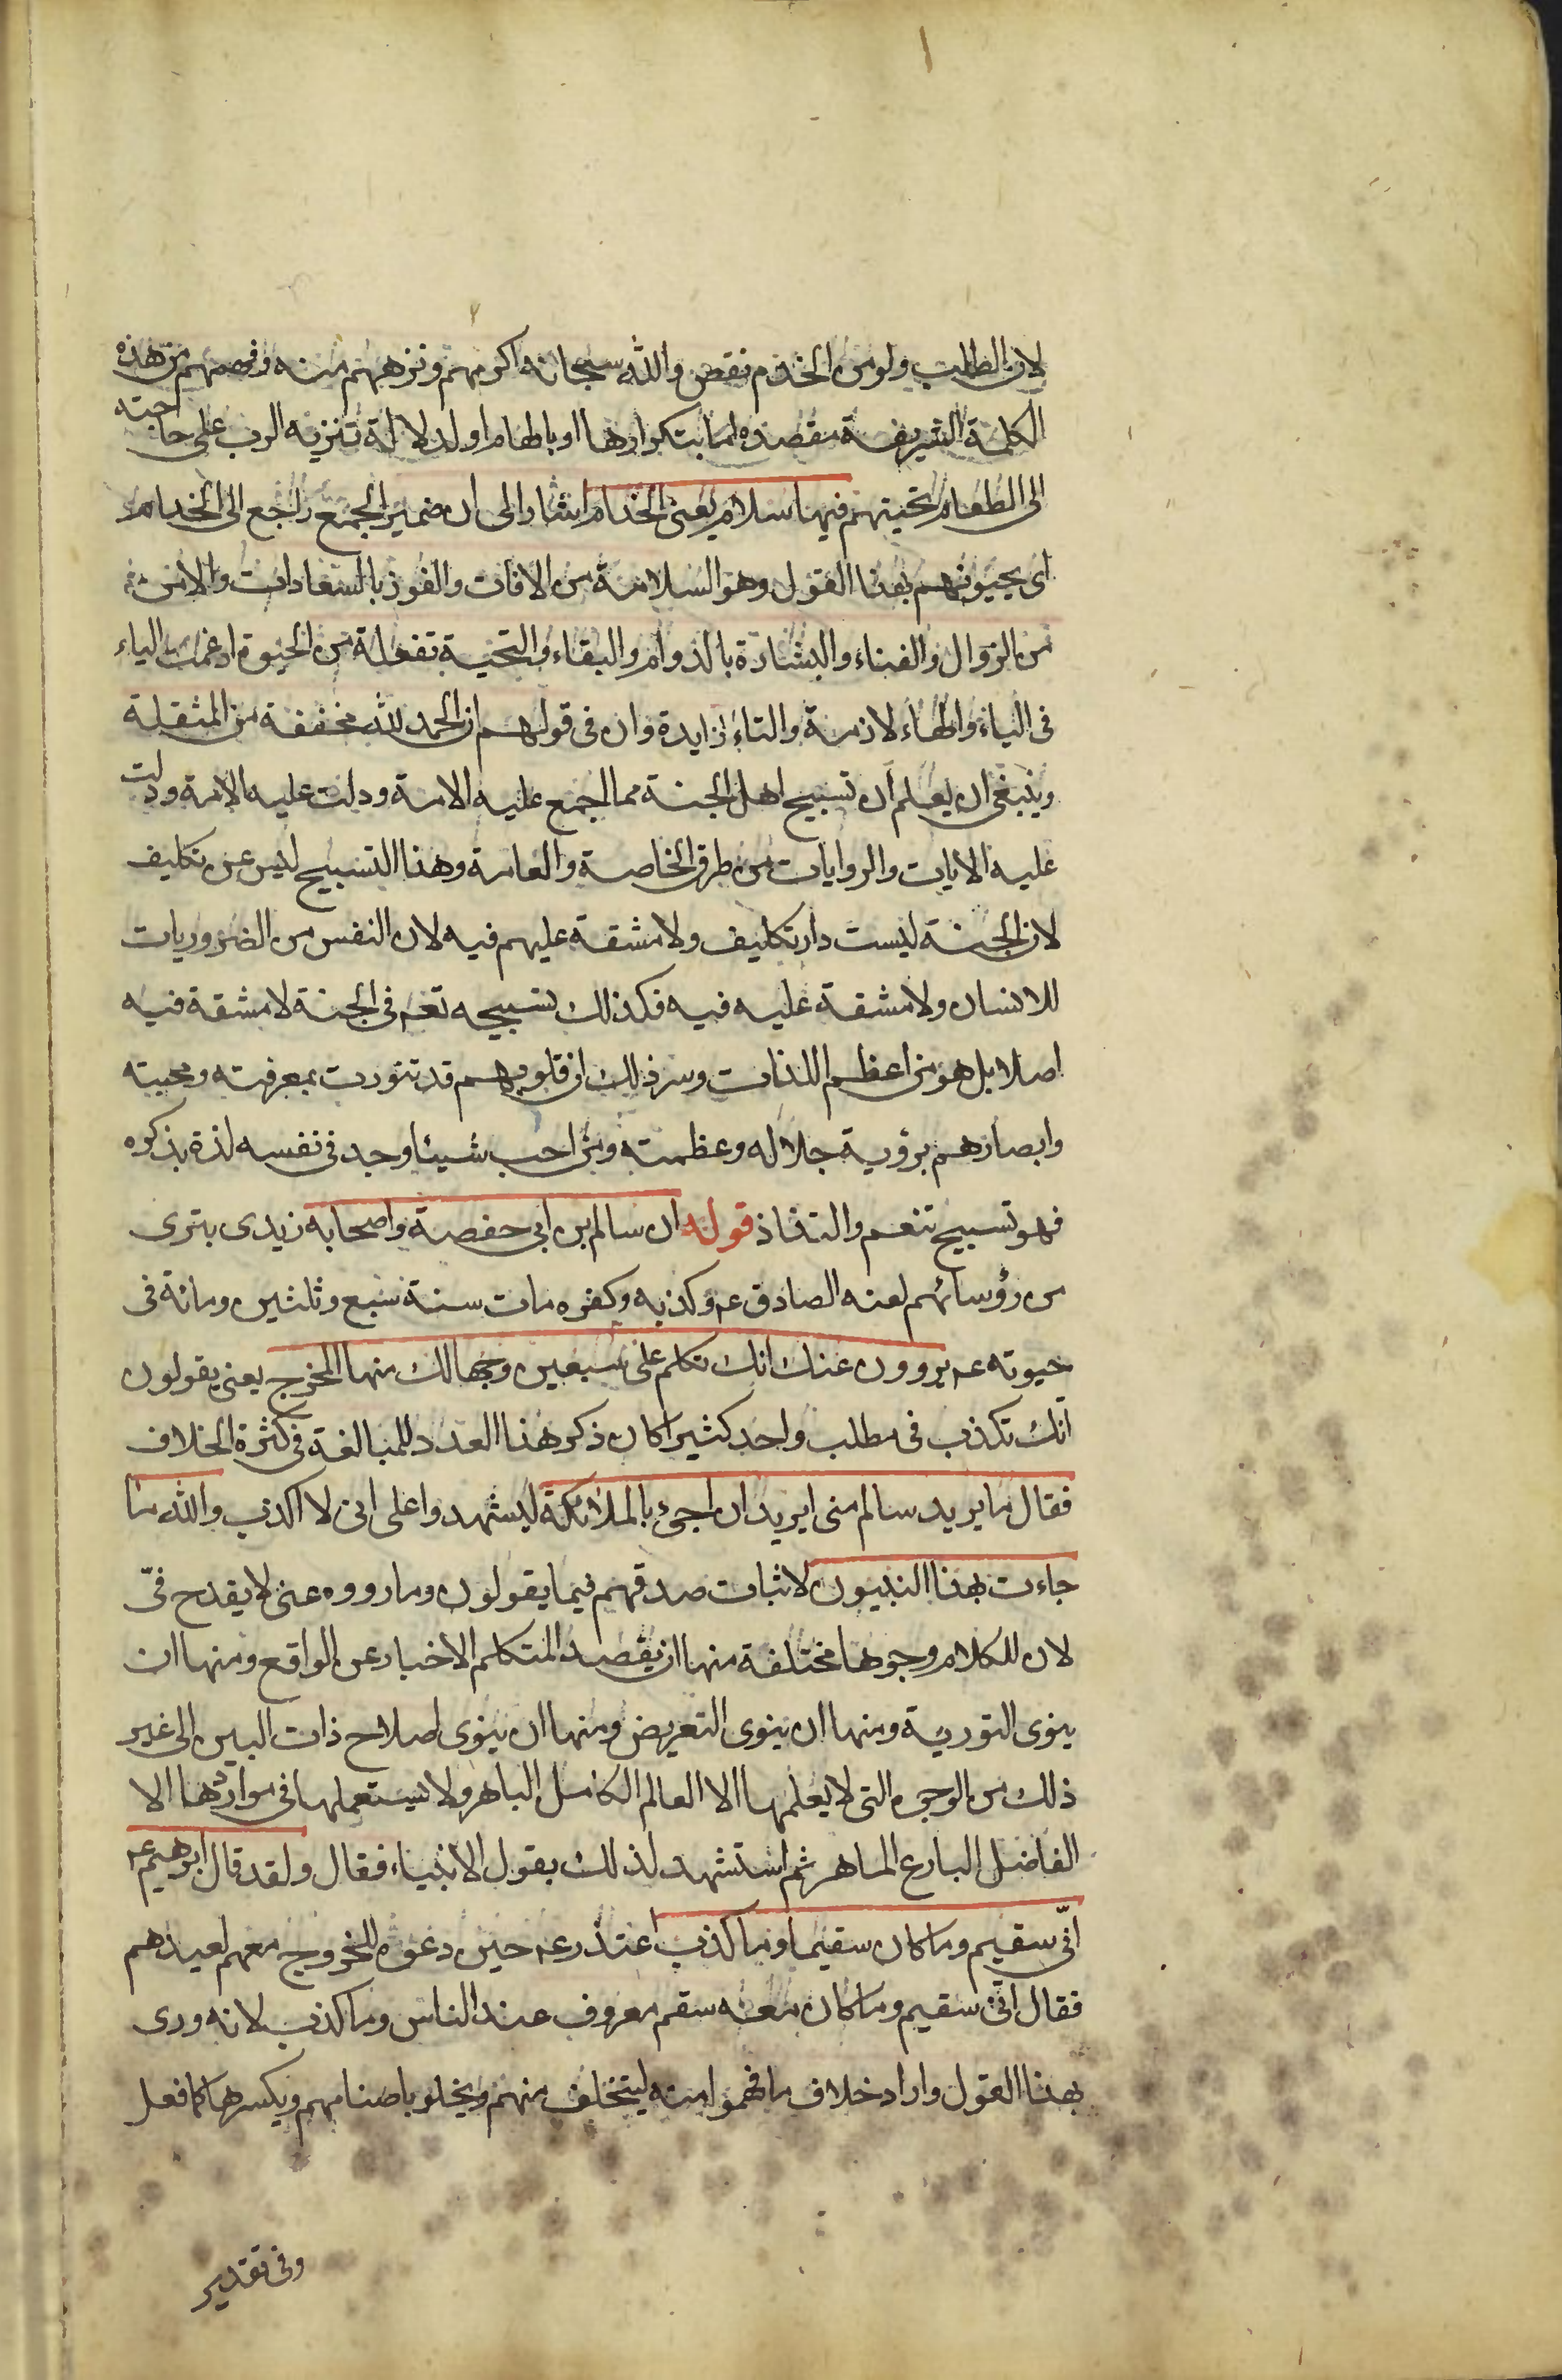 لان الطلب ولو من الخدم نقص والله سبحانه اكرمهم ونزههم منه وفهمهم من هذه
الكلمة الشريفة مقصدهم اما بتكرارها او بالهام او لدلالة تنزيه الرب على حاجته
الى الطعام تحيتهم فيها سلام يعنى الخدام اشار الى ان ضمير الجمع راجع الى الخدام
اى يحيونهم بهذا القول وهو السلامة من الافات والفوز بالسعادات والامن
من الزوال والفناء والبشارة بالدوام والبقاء والتحية تفعلة من الحيوة ادغمت الياء
فى الياء والهاء لازمة والتاء زايدة وان فى قولهم ان الحمد لله مخففة من المثقلة
وينبغى ان يعلم ان تسبيح اهل الجنة مما اجمع عليه الامة ودلت عليه الائمة ودلت
عليه الايات والروايات من طرق الخاصة والعامة وهذا التسبيح ليس عن تكليف
لان الجنة ليست دار تكليف ولا مشقة عليهم فيه لان النفس من الضروريات
للانسان ولا مشقة عليه فيه فكذلك تسبيحه تعم فى الجنة لا مشقة فيه
اصلا بل هو من اعظم اللذات وسر ذلك ان قلوبهم قد تنورت بمعرفته ومحبته
وابصارهم برؤية جلاله وعظمته ومن احب شيئا وجد فى نفسه لذة بذكره
فهو تسبيح تنعم والتذاذ قوله ان سالم بن ابى حفصة واصحابه زيدى بترى
من رؤسائهم لعنه الصادق عم وكذبه وكفره مات سنة سبع وثلثين ومائة فى
حيوته عم يروون عنك انك تكلم على سبعين وجها لك منها المخرج يعنى يقولون
انك تكذب فى مطلب واحد كثيرا كان ذكر هذا العدد للمبالغة فى كثرة الخلاف
فقال ما يريد سالم منى ايريد ان اجىء بالملائكة ليشهدوا على انى لا اكذب والله ما
جاءت بهذا النبيون لاثبات صدقهم فيما يقولون وما رووه عنى لا يقدح فىّ
لان للكلام وجوها مختلفة منها ان يقصد المتكلم الاخبار عن الواقع ومنها ان
ينوى التورية ومنها ان ينوى التعريض ومنها ان ينوى اصلاح ذات البين الى غير
ذلك من الوجوه التى لا يعلمها الا العالم الكامل الباهر ولا يستعملها فى مواردها الا
الفاضل البارع الماهر ثم استشهد لذلك بقول الانبياء فقال ولقد قال ابرهيم عم
انّى سقيم وما كان سقيما وما كذب اعتذر عم حين دعوه للخروج معهم لعيدهم
فقال انّى سقيم وما كان معه سقم معروف عند الناس وما كذب لانه ورى
بهذا القول واراد خلاف ما فهموا منه ليتخلف منهم ويخلو باصنامهم ويكسرها كما فعل
وفى تقدير